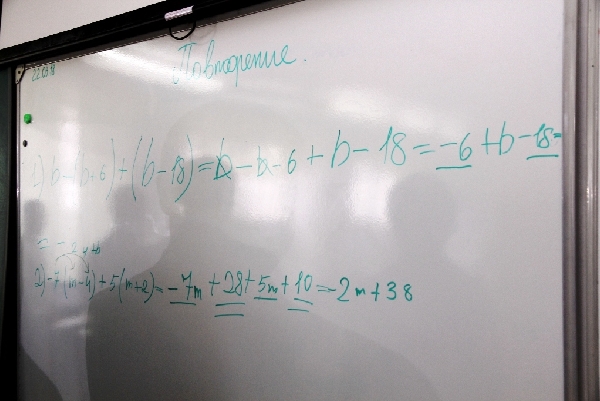 22.03.18
Повторение.
1) b-(b+6)+(b-18)=b-b-6+b-18=-6+b-18=
=-24+b
2)-7(m-4)+5(m+2)=-7m+28+5m+10=-2m+38